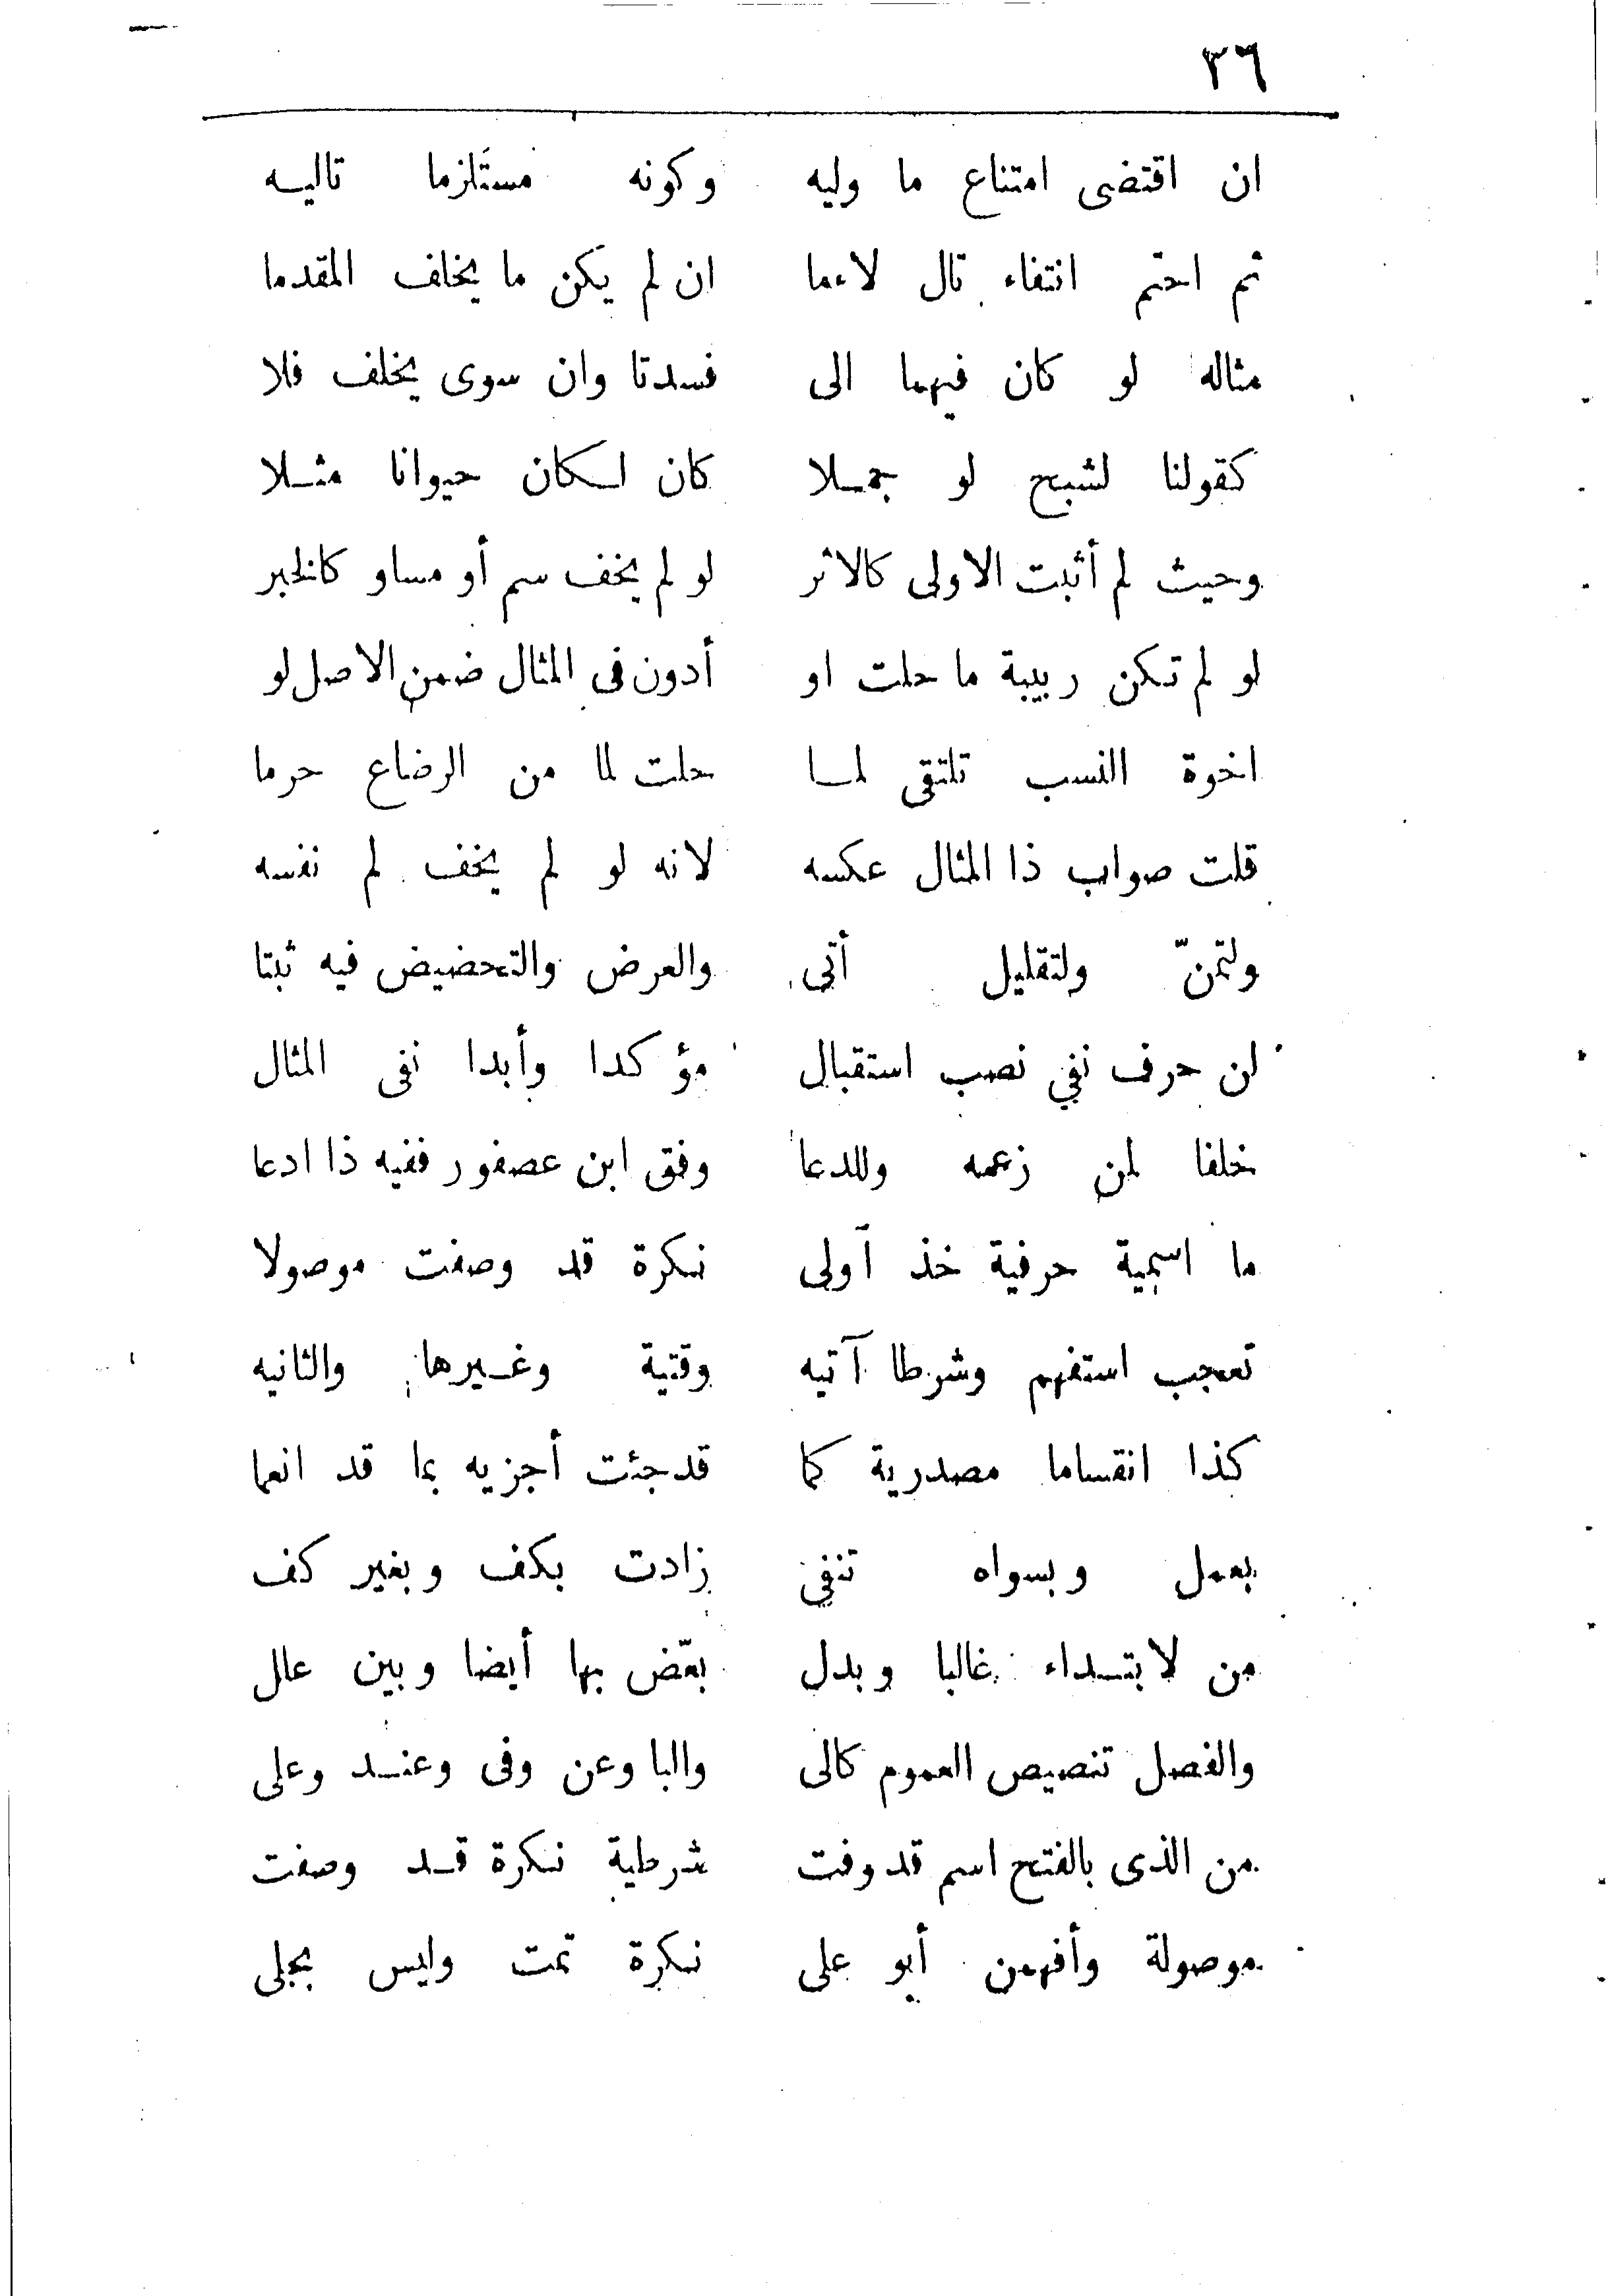 ٣٦
ان اقتضى امتناع ما وليه وكونه مستلزما تاليه
ثم احتم انتفاء تال لاءما ان لم يكن ما يخلف المقدما
مثاله لو كان فيهما الى فسدتا وان سوى يخلف فلا
كقولنا لشبح لو جملا كان لكان حيوانا مثلا
وحيث لم أثبت الاولى كالاثر لو لم يخف سم أو مساو كالخبر
لو لم تكن ربيبة ما حلت او أدون فى المثال ضمن الاصل لو
اخوة النسب تلتقى لما حلت لما من الرضاع حرما
قلت صواب ذا المثال عكسه لانه لو لم يخف لم نفسه
ولتمنّ ولتقليل أتى والعرض والتحضيض فيه ثبتا
لن حرف نفي نصب استقبال مؤكدا وأبدا نفى المثال
خلفا لمن زعمه وللدعا وفق ابن عصفور ففيه ذا ادعا
ما اسمية حرفية خذ أولى نكرة قد وصفت موصولا
تعجب استفهم وشرطا آتيه وقتية وغيرها والثانيه
كذا انقساما مصدرية كما قد جئت أجزيه بما قد انعما
بعمل وبسواه تنفي زادت بكف وبغير كف
من لابتداء غالبا وبدل بعّض بها أيضا وبين علل
والفصل تنصيص العموم كالى والبا وعن وفى وعند وعلى
من الذى بالفتح اسم قد وفت شرطية نكرة قد وصفت
موصولة وأفهمن أبو على نكرة تمت وليس بجلى